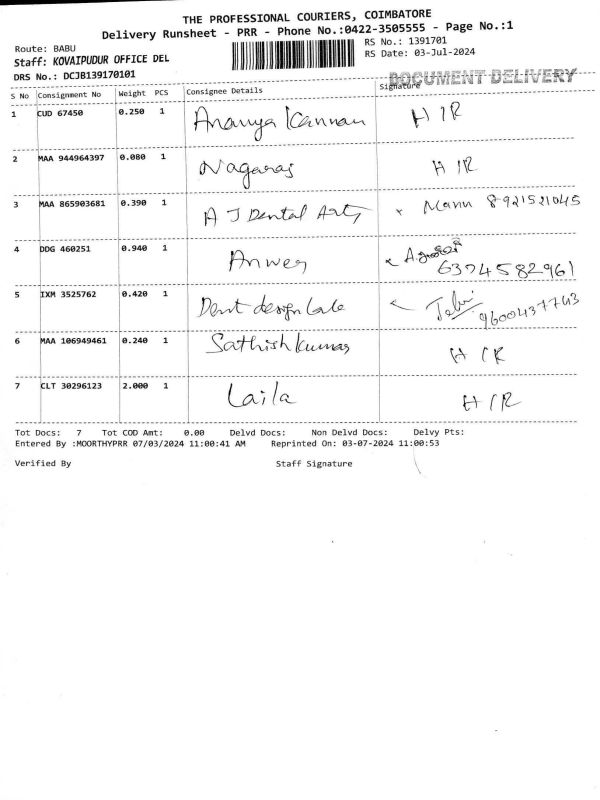 THE PROFESSIONAL COURIERS, COIMBATORE
Delivery Runsheet - PRR - Phone No.:0422-3505555 - Page No.:1
Route: BABU
RS No.: 1391701
Staff: KOVAIPUDUR OFFICE DEL
RS Date: 03-Jul-2024
DRS No.: DCJB139170101
DOCUMENT DELIVERY
S No Consignment No Weight PCS Consignee Details Signature
1 CUD 67450 0.250 1 Ananya Kannan H I R
2 MAA 944964397 0.080 1 Nagaraj H I R
3 MAA 865903681 0.390 1 A J Dental Arts x 8921521045
4 DDG 460251 0.940 1 Anwer
6374582961
5 IXM 3525762 0.420 1 Dent design Lab
9600437743
6 MAA 106949461 0.240 1 Sathish kumar H I R
7 CLT 30296123 2.000 1 Laila H I R
Tot Docs: 7 Tot COD Amt: 0.00 Delvd Docs: Non Delvd Docs: Delvy Pts:
Entered By :MOORTHYPRR 07/03/2024 11:00:41 AM Reprinted On: 03-07-2024 11:00:53
Verified By Staff Signature